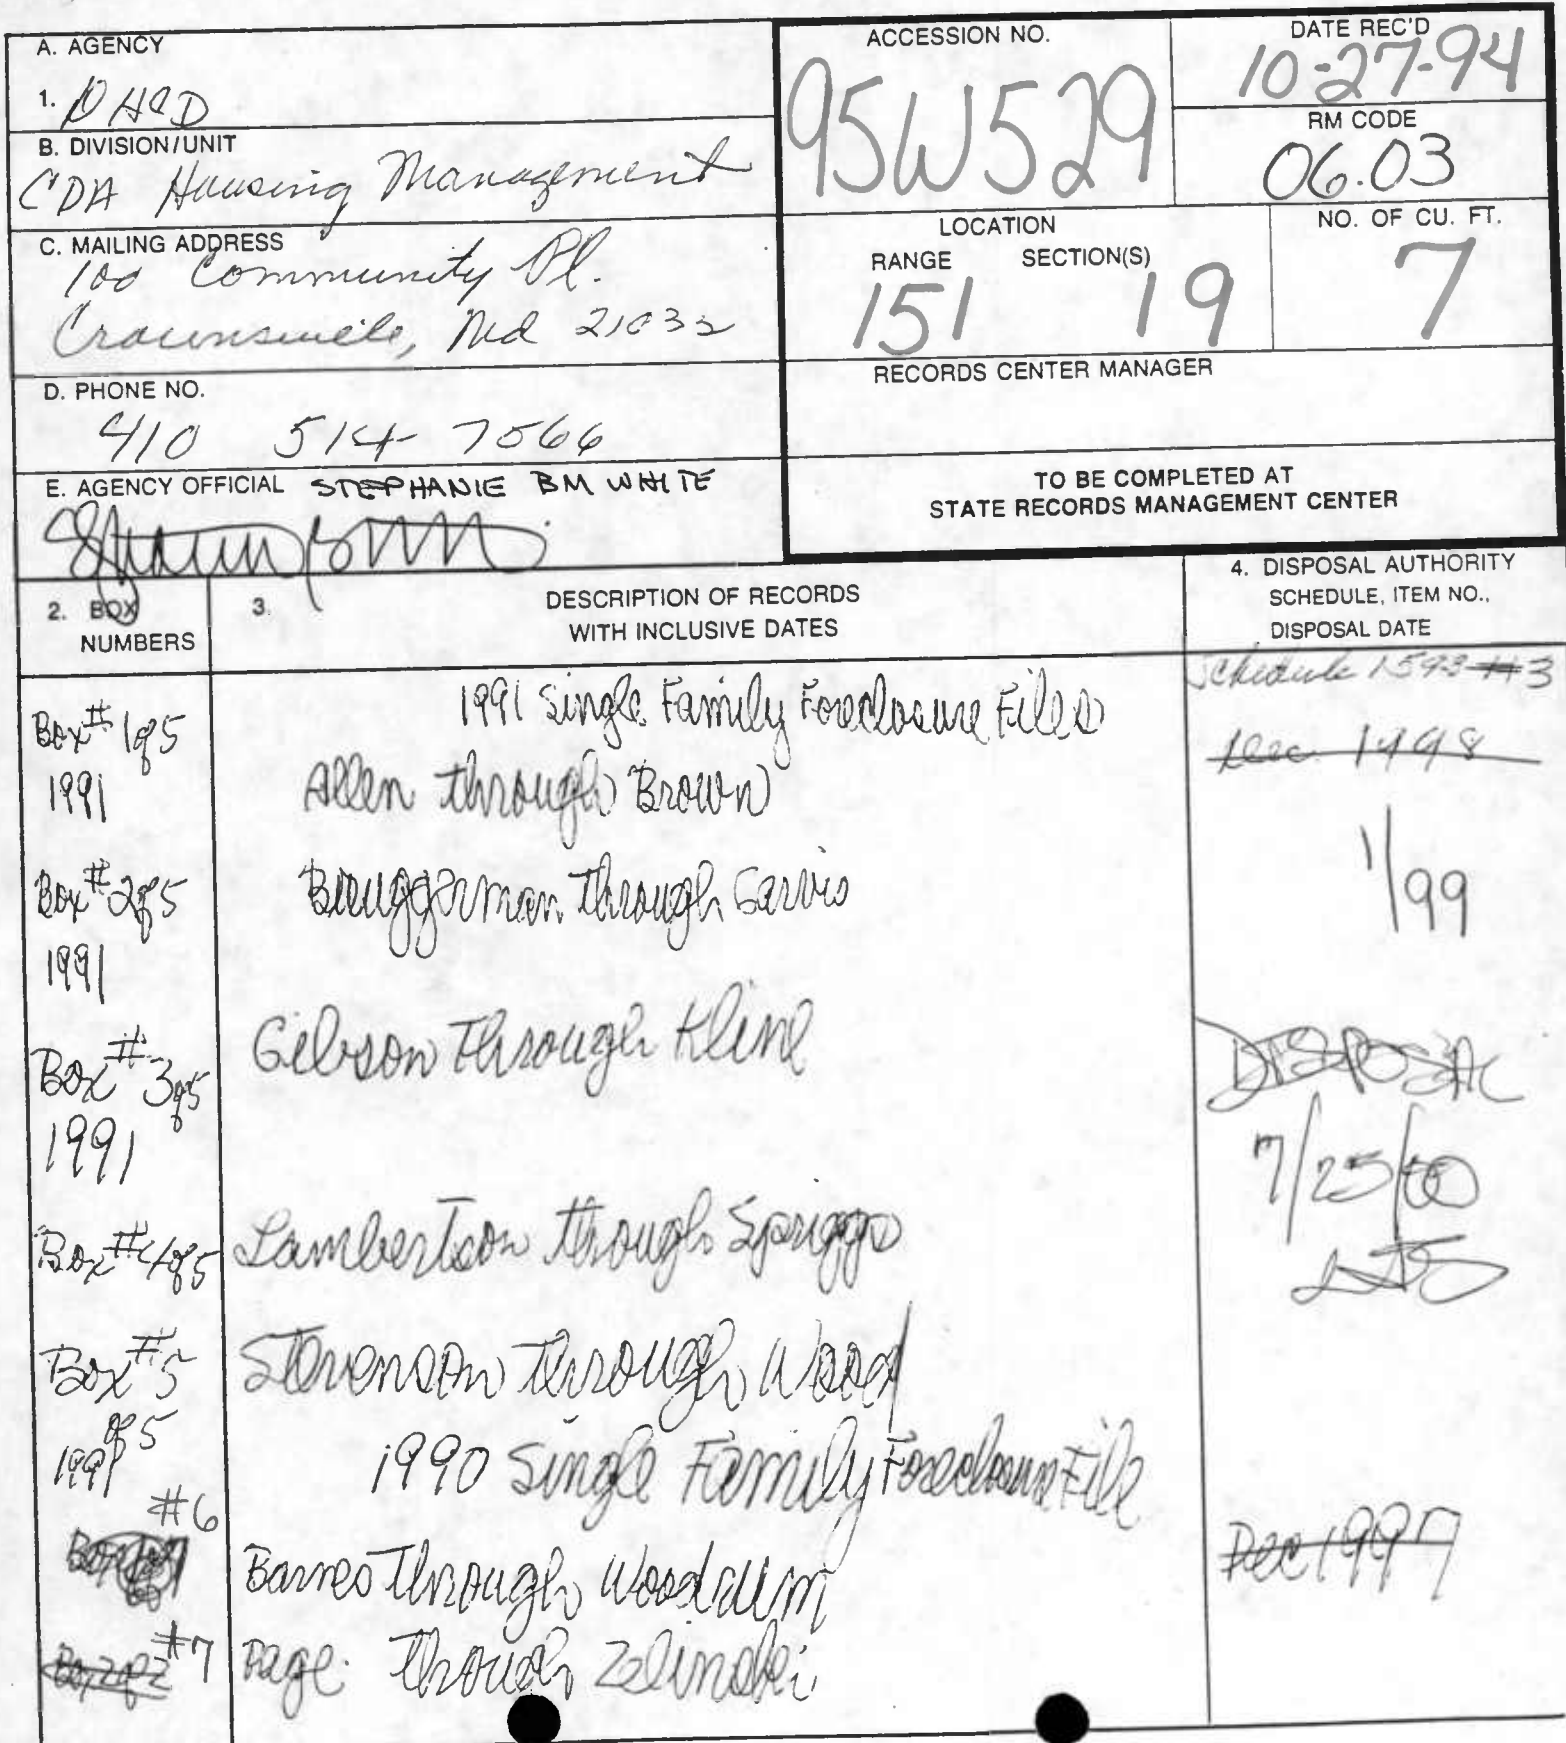 A. AGENCY
1. DHCD
B. DIVISION/UNIT
CDA Housing Management
C. MAILING ADDRESS
100 Community Pl.
Crownsville, Md 21032
D. PHONE NO.
410 514-7566
E. AGENCY OFFICIAL STEPHANIE BM WHITE
ACCESSION NO.
95W529
DATE REC'D
10-27-94
RM CODE
06.03
LOCATION
RANGE SECTION(S)
151 19
NO. OF CU. FT.
7
RECORDS CENTER MANAGER
TO BE COMPLETED AT
STATE RECORDS MANAGEMENT CENTER
2. BOX
NUMBERS
3.
DESCRIPTION OF RECORDS
WITH INCLUSIVE DATES
4. DISPOSAL AUTHORITY
SCHEDULE, ITEM NO.,
DISPOSAL DATE
1991 Single Family Foreclosure Files
Schedule 1593 #3
Box # 1 of 5
1991
Allen through Brown
Dec 1998
1/99
Box # 2 of 5
1991
Bruggerman through Garvis
Box # 3 of 5
1991
Gibson through Kline
DISPOSAL
7/25/00
Box # 4 of 5
Lambertson through Spriggs
Box # 5
of 5
1991
Stevenson through Wood
1990 Single Family Foreclosure File
#6
Barnes through Woodrum
Dec 1997
Box 2 of 2 #7
Page through Zelinski